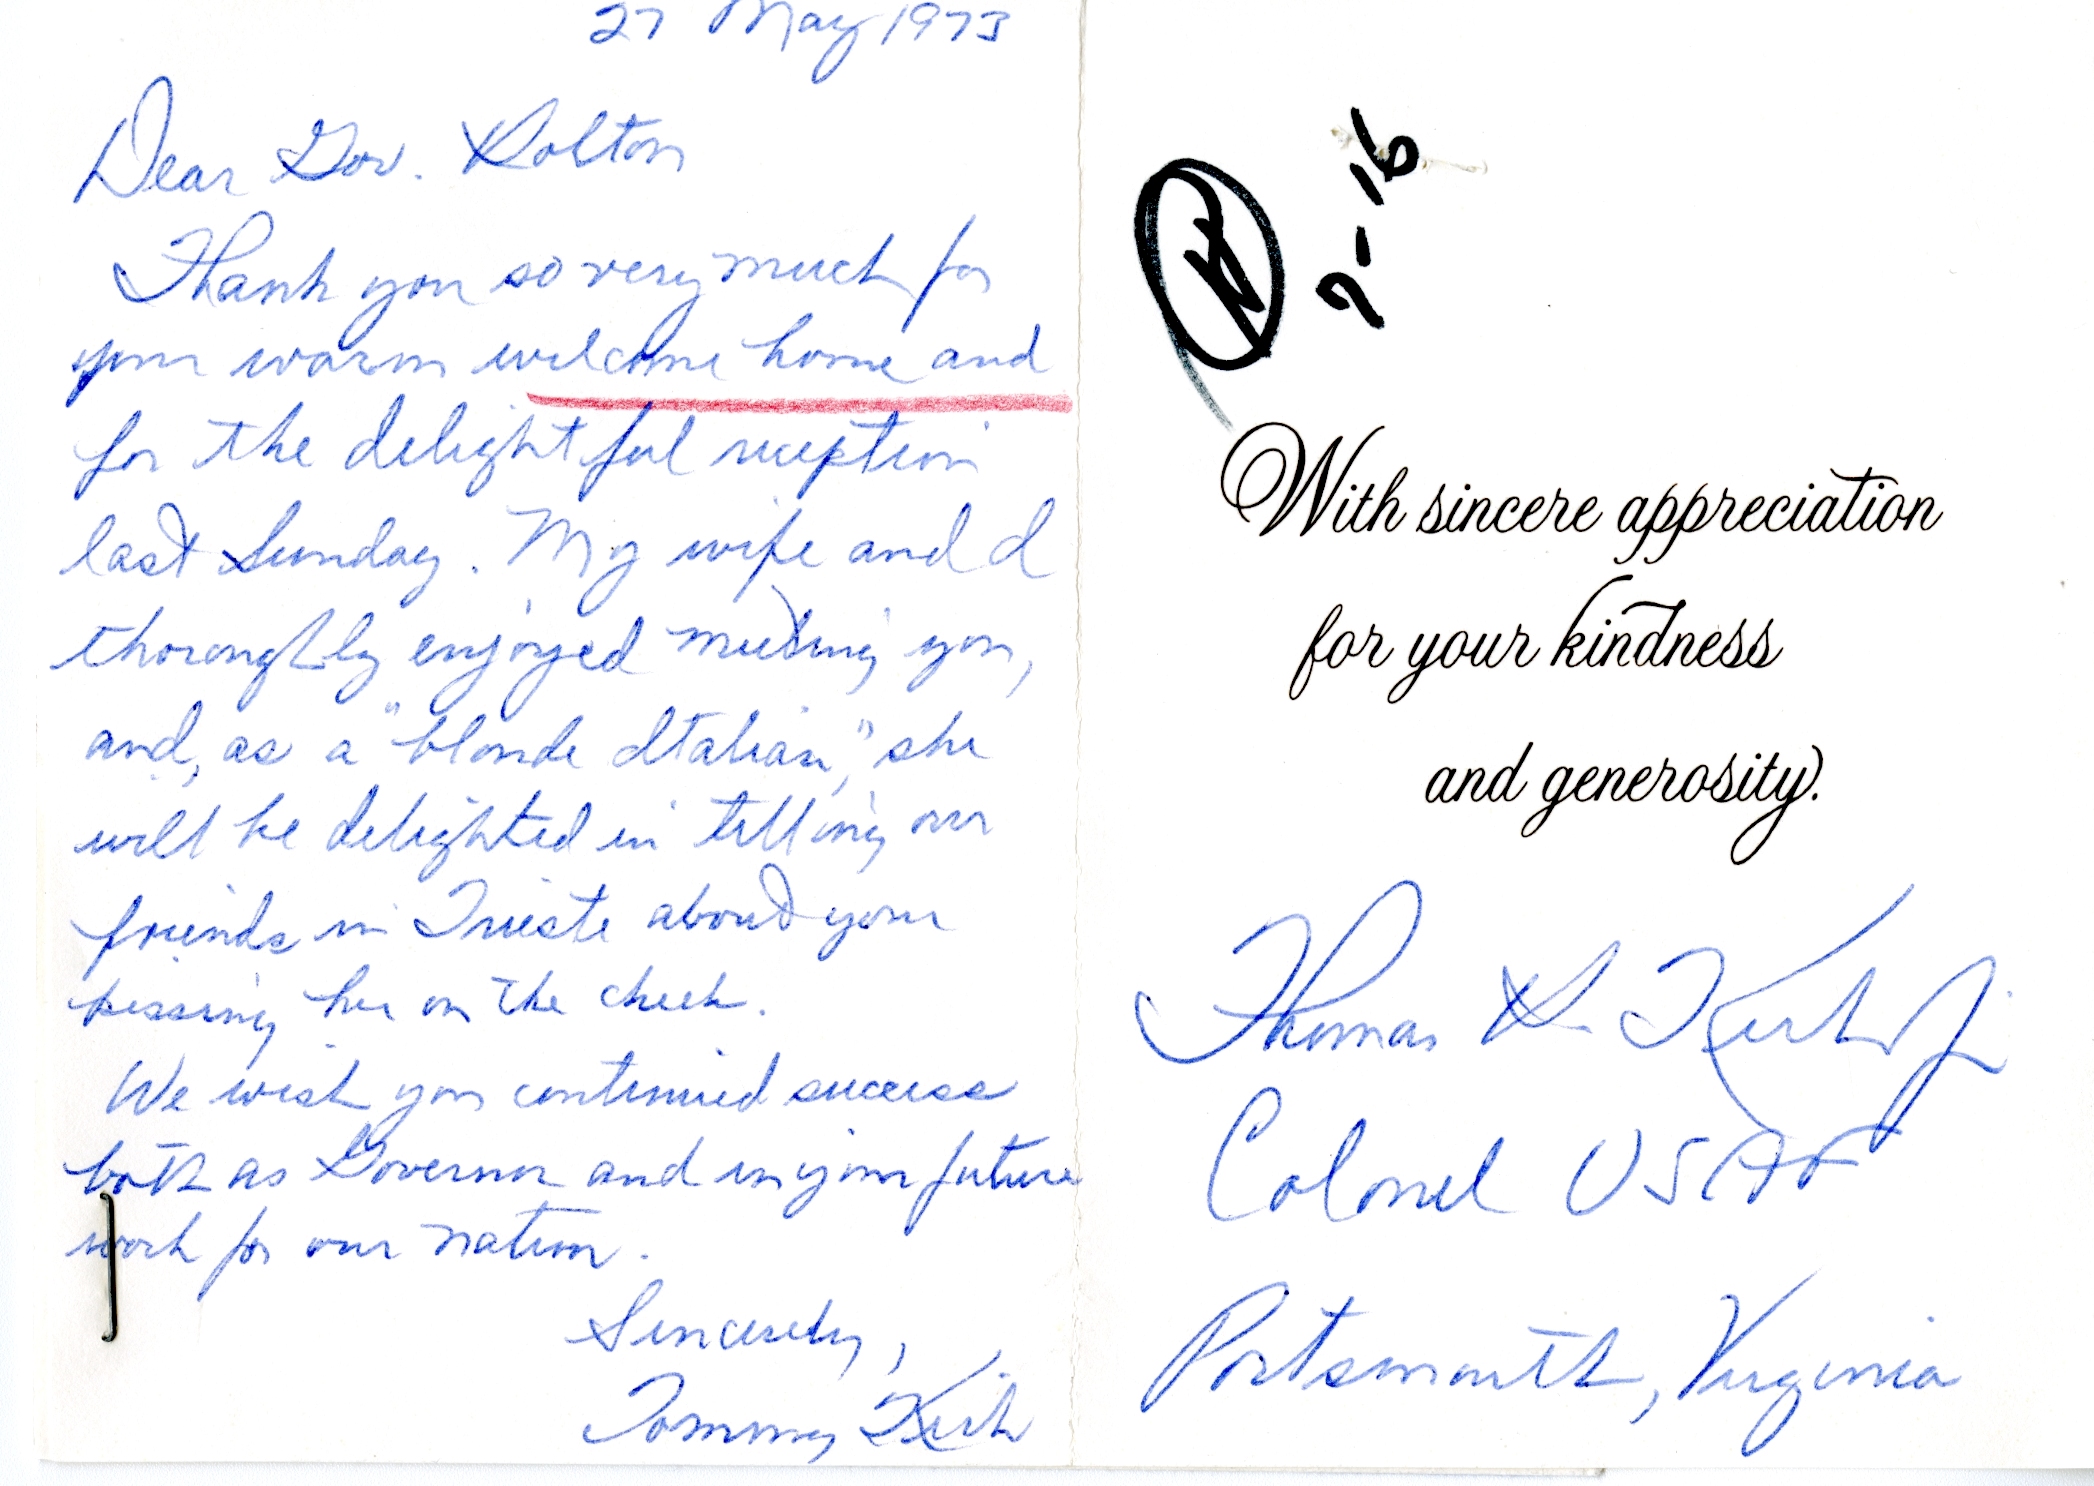 27 May 1973
Dear Gov. Holton
Thank you so very much for
your warm welcome home and
for the delightful reception
last Sunday. My wife and I
thoroughly enjoyed meeting you,
and, as a "blonde Italian," she
will be delighted in telling our
friends in Trieste about your
kissing her on the cheek.
We wish you continued success
both as Governor and in your future
work for our nation.
Sincerely,
Tommy Kirk
7-16
With sincere appreciation
for your kindness
and generosity.
Thomas H. Kirk Jr
Colonel USAF
Portsmouth, Virginia